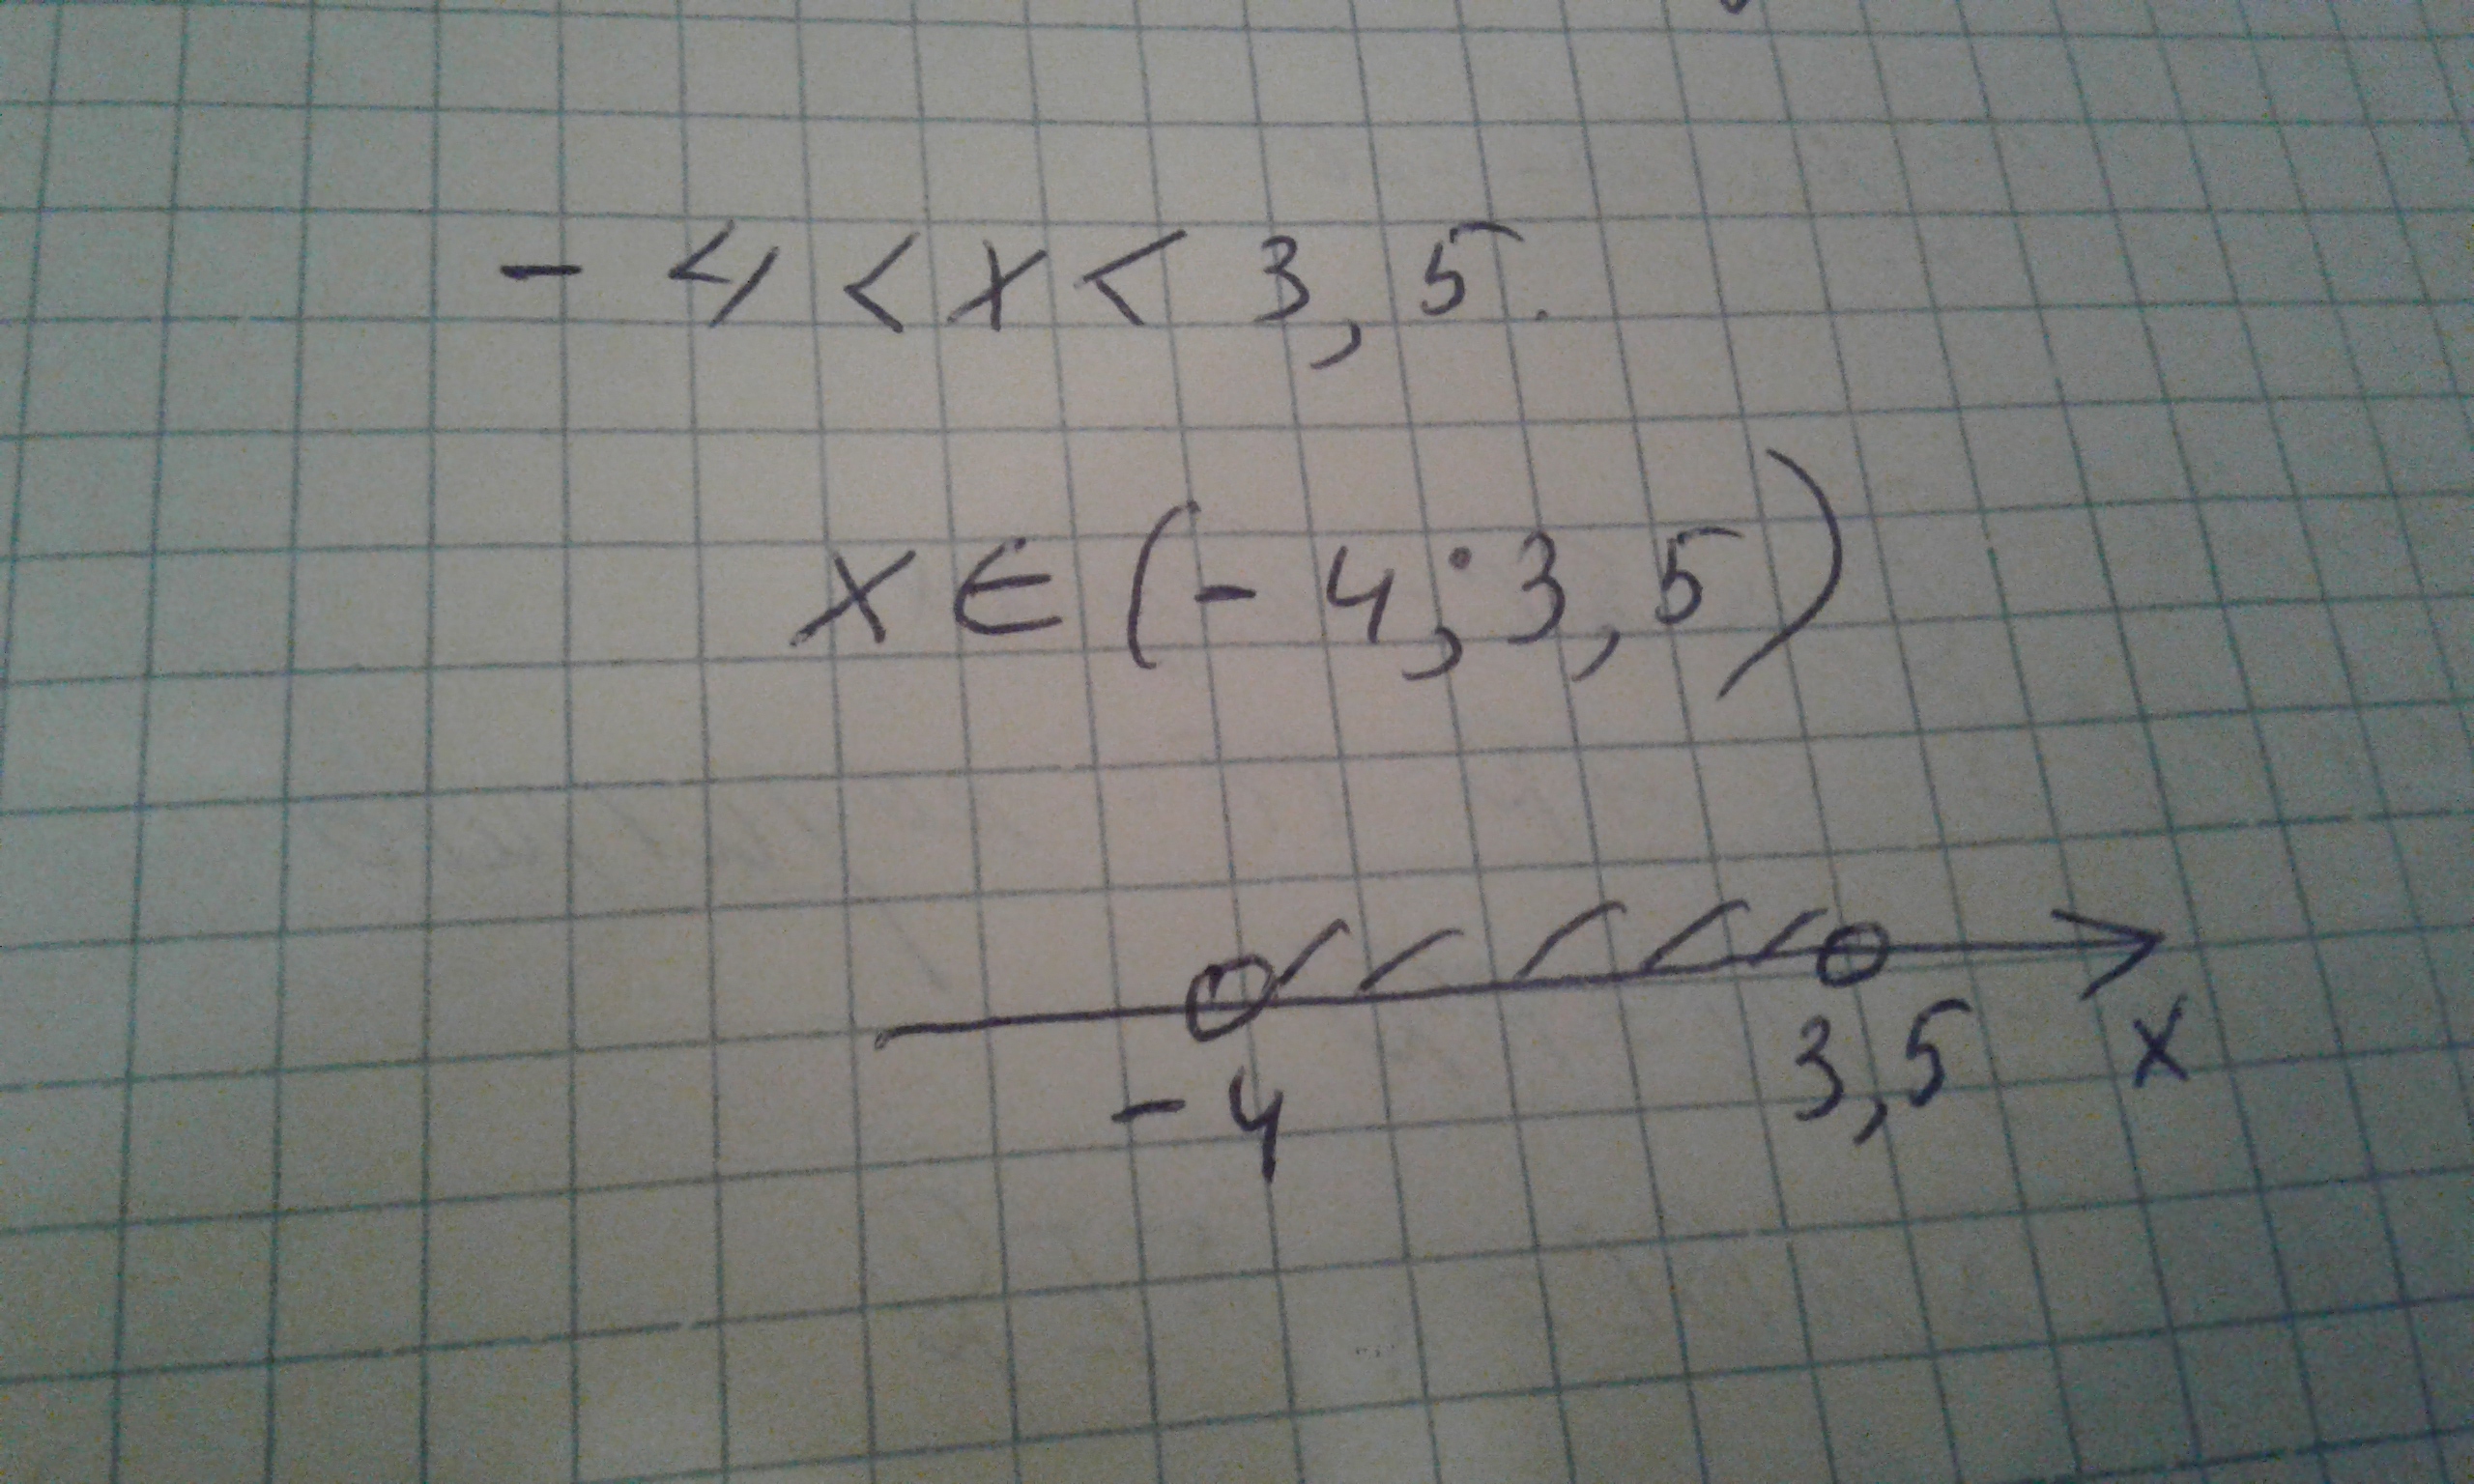 - 4 < x < 3,5.
x ∈ (- 4; 3,5)
-4 3,5 x